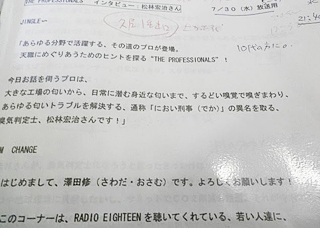 THE PROFESSIONALS インタビュー：松林宏治さん
7/30（水）放送用
JINGLE～
「あらゆる分野で活躍する、その道のプロが登場。
天職にめぐりあうためのヒントを探る "THE PROFESSIONALS" ！
10代の方に。
今日お話を伺うプロは、
大きな工場の匂いから、日常に潜む身近な匂いまで、するどい嗅覚で嗅ぎまわり、
あらゆる匂いトラブルを解決する、通称「におい刑事（でか）」の異名を取る、
臭気判定士、松林宏治さんです！」
CHANGE
はじめまして、澤田修（さわだ・おさむ）です。よろしくお願いします！
このコーナーは、RADIO EIGHTEEN を聴いてくれている、若い人達に、